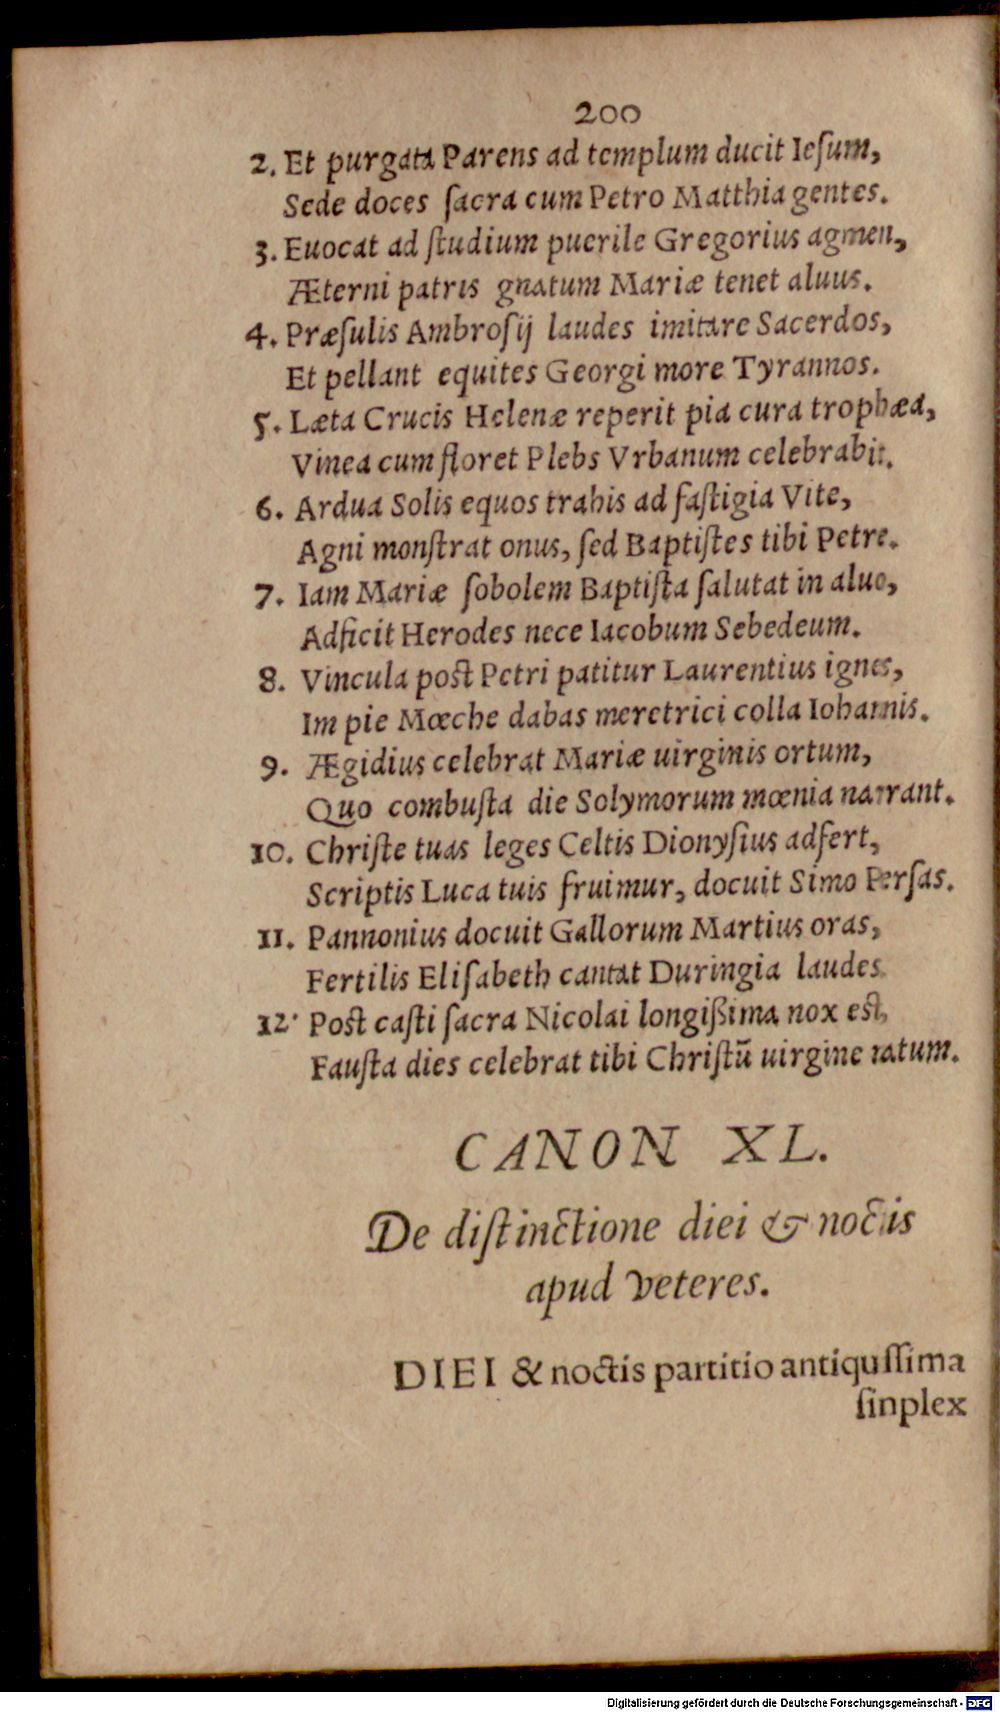 200
2. Et purgata Parens ad templum ducit Ieſum,
Sede doces ſacra cum Petro Matthia gentes.
3. Euocat ad ſtudium puerile Gregorius agmen,
Æterni patris gnatum Mariæ tenet aluus.
4. Præſulis Ambroſij laudes imitare Sacerdos,
Et pellant equites Georgi more Tyrannos.
5. Læta Crucis Helenæ reperit pia cura trophæa,
Vinea cum floret Plebs Vrbanum celebrabit.
6. Ardua Solis equos trahis ad faſtigia Vite,
Agni monſtrat onus, ſed Baptiſtes tibi Petre.
7. Iam Mariæ ſobolem Baptiſta ſalutat in aluo,
Adficit Herodes nece Iacobum Sebedeum.
8. Vincula poſt Petri patitur Laurentius ignes,
Im pie Mœche dabas meretrici colla Iohannis.
9. Ægidius celebrat Mariæ uirginis ortum,
Quo combuſta die Solymorum mœnia narrant.
10. Chriſte tuas leges Celtis Dionyſius adfert,
Scriptis Luca tuis fruimur, docuit Simo Perſas.
11. Pannonius docuit Gallorum Martius oras,
Fertilis Eliſabeth cantat Duringia laudes.
12. Poſt caſti ſacra Nicolai longißima nox eſt,
Fauſta dies celebrat tibi Chriſtū uirgine natum.
CANON XL.
De diſtinctione diei & noctis
apud veteres.
DIEI & noctis partitio antiquſſima
ſinplex
Digitalisierung gefördert durch die Deutsche Forschungsgemeinschaft - DFG